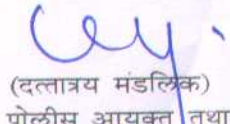 (दत्तात्रय मंडलिक)
पोलीस आयुक्त तथा